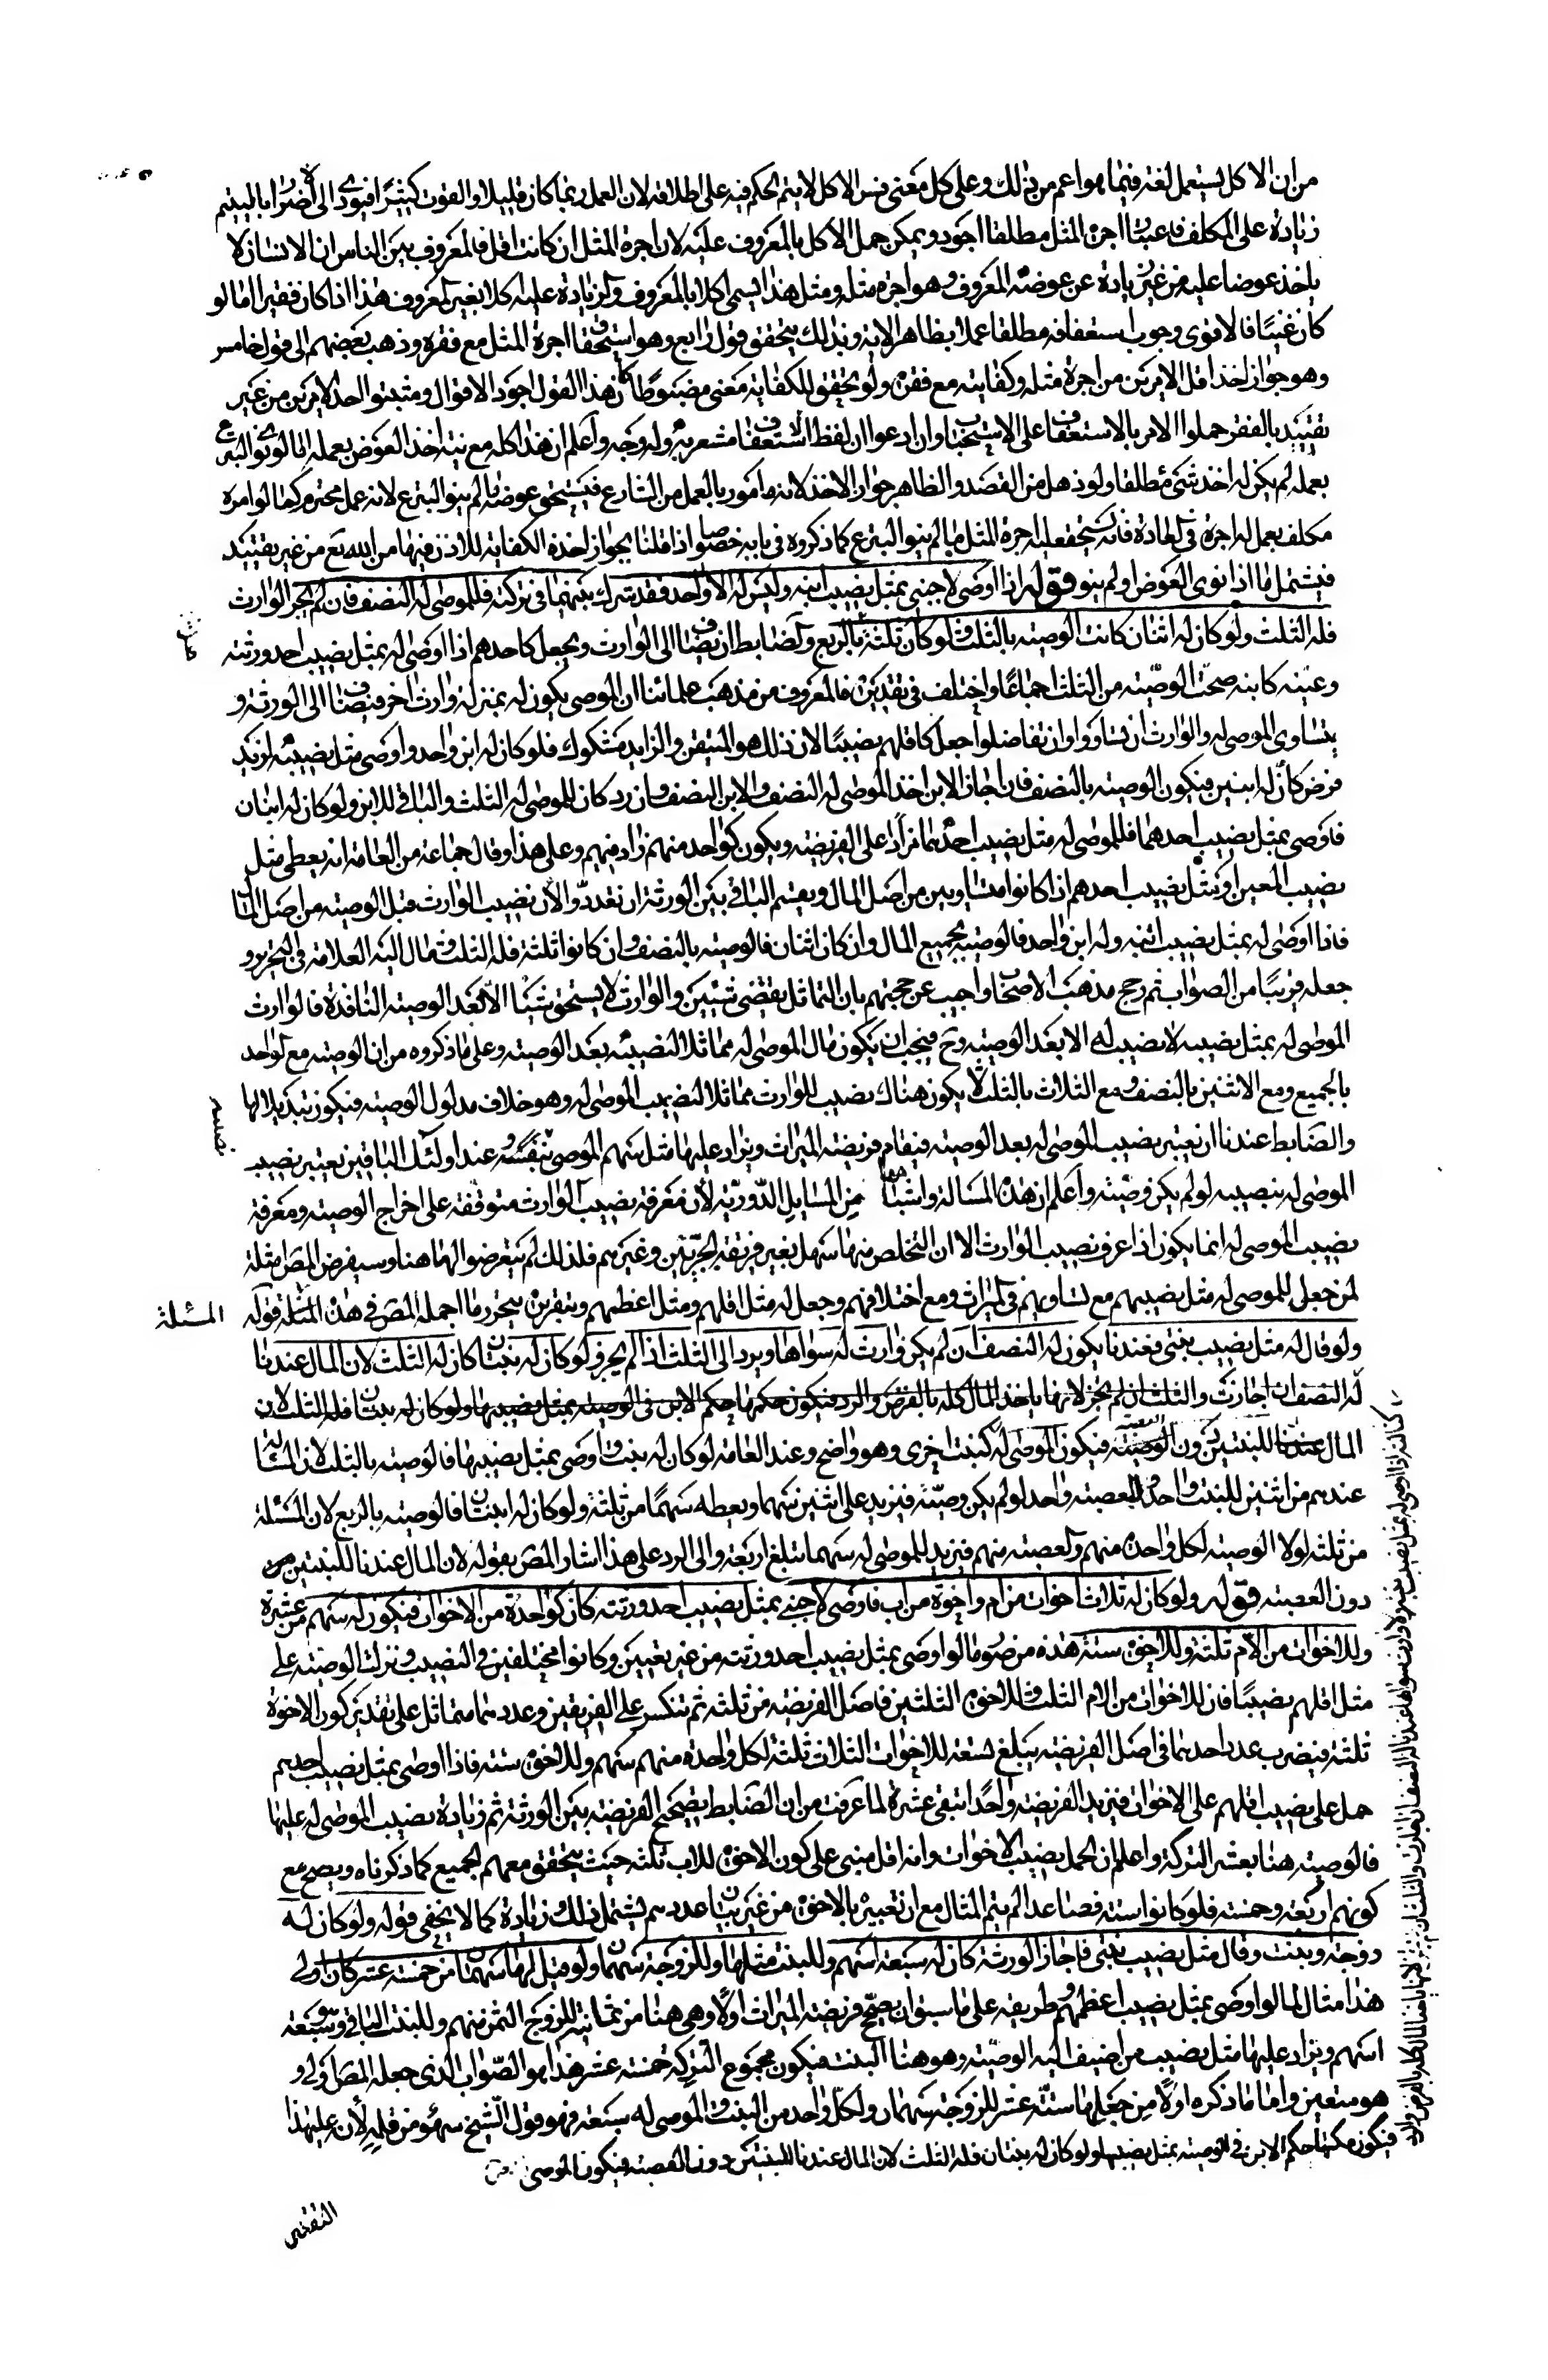 من ان الاكل يستعمل لغة فيما هو اعم من ذلك وعلى كل معنى فسر الاكل لا يتم الحكم فيه على اطلاقه لان العمل ربما كان قليلا والقوت كثيرا فيؤدى الى الاضرار باليتيم
زيادة على المكلف فاعتبار اجرة المثل مطلقا اجود ويمكن حمل الاكل بالمعروف عليه لان اجرة المثل ان كانت اقل فالمعروف بين الناس ان الانسان لا
ياخذ عوضا عليه من غير زيادة عن عوضه المعروف وهو اجرة مثله ومثل هذا يسمى اكلا بالمعروف والزيادة عليه اكلا بغير المعروف هذا اذا كان فقيرا اما لو
كان غنيا فالاقوى وجوب استعفافه مطلقا عملا بظاهر الاية وبذلك يتحقق قول رابع وهو استحقاق اجرة المثل مع فقره وذهب بعضهم الى قول خامس
وهو جواز اخذ اقل الامرين من اجرة مثله وكفايته مع فقره ولو تحقق للكفاية معنى مضبوطا كان هذا القول اجود الاقوال ومثبتوا احد الامرين من غير
تقييد بالفقر حملوا الامر بالاستعفاف على الاستحباب وان ادعوا ان لفظ الاستعفاف مشعر به وله وجه واعلم ان هذا كله مع نية اخذ العوض بعمله اما لو نوى التبرع
بعمله لم يكن له اخذ شئ مطلقا ولو ذهل من القصد فالظاهر جواز الاخذ لانه مامور بالعمل من الشارع فيستحق عوضه ما لم ينو التبرع لانه عمل محترم كما لو امره
مكلف بعمل له اجرة فى العادة فانه يستحق عليه اجرة المثل ما لم ينو التبرع كما ذكروه فى بابه خصوصا اذا قلنا بجواز اخذه الكفاية للاذن فيها من الله تع من غير تقييد
فيشتمل ما اذا نوى العوض او لم ينو قوله اذا اوصى لاجنبى بمثل نصيب ابنه وليس له الا واحد فقد شرك بينهما فى تركته فللموصى له النصف فان لم يجز الوارث
فله الثلث ولو كان له اثنان كانت الوصية بالثلث ولو كان ثلثة بالربع والضابط ان يضاف الى الوارث ويجعل كاحدهم اذا اوصى له بمثل نصيب احد ورثته
وعينه كابنه صحت الوصية من الثلث اجماعا واختلف فى تقديره فالمعروف من مذهب علمائنا ان الموصى يكون له بمنزلة وارث اخر فيضاف الى الورثة و
يتساوى الموصى له والوارث ان تساووا وان تفاضلوا جعل كاقلهم نصيبا لان ذلك هو المتيقن والزايد مشكوك فلو كان له ابن واحد واوصى مثل نصيبه لزيد
فرض كأن له ابنين فيكون الوصية بالنصف فان اجاز الابن اخذ الموصى له النصف والابن النصف وان رد كان للموصى له الثلث والباقى للابن ولو كان له ابنان
فاوصى بمثل نصيب احدهما فللموصى له مثل نصيب احدهما مزادا على الفريضة ويكون كواحد منهم زاد فيهم وعلى هذا وقال جماعة من العامة انه يعطى مثل
نصيب المعين او مثل نصيب احدهم اذا كانوا متساويين من اصل المال ويقسم الباقى بين الورثة ان تعددوا لان نصيب الوارث قبل الوصية من اصل المال
فاذا اوصى له بمثل نصيب ابنه وله ابن واحد فالوصية بجميع المال وان كان اثنان فالوصية بالنصف وان كانوا ثلثة فله الثلث ومال اليه العلامة فى التحرير و
جعله قريبا من الصواب ثم رجح مذهب الاصحاب واجيب عن حجتهم بان التماثل يقتضى شيئين والوارث لا يستحق شيئا الا بعد الوصية النافذة فالوارث
الموصى له بمثل نصيبه لا نصيب له الا بعد الوصية وح فيجب ان يكون مال الموصى له مماثلا لنصيبه بعد الوصية وعلى ما ذكروه من ان الوصية مع الواحد
بالجميع ومع الاثنين بالنصف ومع الثلاث بالثلث لا يكون هناك نصيب للوارث مماثلا لنصيب الموصى له وهو خلاف مدلول الوصية فيكون تبديلا لها
والضابط عندنا ان نعتبر نصيب الموصى له بعد الوصية فيقام فريضة الميراث ويزاد عليها مثل سهم الموصى بنصيبه وعند اولئك الباقين يعتبر نصيب
الموصى له بنصيبه لو لم يكن وصية واعلم ان هذه المسالة واشباهها من المسايل الدورية لان معرفة نصيب الوارث متوقفة على اخراج الوصية ومعرفة
نصيب الموصى له انما يكون اذا عرف نصيب الوارث الا ان التخلص منها سهل بغير طريقة الجبريين وغيرهم فلذلك لم يتعرضوا لها هنا وسيفرض المص امثلة
لمن جعل للموصى له مثل نصيبهم مع تساويهم فى الميراث ومع اختلافهم وجعل له مثل اقلهم ومثل اعظمهم وبتقريره يتحرر ما اجمله المص فى هذه المسئلة قوله
ولو قال له مثل نصيب بنتى فعندنا يكون له النصف ان لم يكن وارث له سواها ويرد الى الثلث اذا لم يجز ولو كان له بنتان كان له الثلث لان المال عندنا
له النصف ان اجازت والثلث ان لم يجز لانها ياخذ المال كله بالفرض والرد فيكون حكمها حكم الابن فى الوصية بمثل نصيبها ولو كان له بنتان فله الثلث لان
المال عندنا للبنتين دون العصبة فيكون الموصى له كبنت اخرى وهو واضح وعند العامة لو كان له بنت واوصى بمثل نصيبها فالوصية بالثلث لان المسالة
عندهم من اثنين للبنت واحد وللعصبة واحد لو لم يكن وصية فيزيد على اثنين سهما ويعطه سهما من ثلثة ولو كان له ابنتان فالوصية بالربع لان المسئلة
من ثلثة لولا الوصية لكل واحدة منهم وللعصبة سهم فيزيد للموصى له سهما تبلغ اربعة والى الرد على هذا اشار المص بقوله لان المال عندنا للبنتين
دون العصبة قوله ولو كان له ثلاث اخوات من ام واخوة من اب فاوصى لاجنبى بمثل نصيب احد ورثته كان كواحدة من الاخوات فيكون له سهم من عشرة
وللاخوات من الام ثلثة وللاخوة ستة هذه من صور ما لو اوصى بمثل نصيب احد ورثته من غير تعيين وكانوا مختلفين فى النصيب وتنزل الوصية على
مثل اقلهم نصيبا فان للاخوات من الام الثلث وللاخوة الثلثين فاصل الفريضة من ثلثة ثم تنكسر على الفريقين وعددهما متماثل على تقدير كون الاخوة
ثلثة فيضرب عدد احدهما فى اصل الفريضة يبلغ تسعة للاخوات الثلاث ثلثة لكل واحدة منهم سهم وللاخوة ستة فاذا اوصى بمثل نصيب احدهم
حمل على نصيب اقلهم على الاخوات فيزيد الفريضة واحدا تبقى عشرة لما عرفت من ان الضابط تصحيح الفريضة بين الورثة ثم زيادة نصيب الموصى له عليها
فالوصية هنا بعشر التركة واعلم ان الحمل نصيب الاخوات وانه اقل مبنى على كون الاخوة للاب ثلثة حيث يتحقق معهم الجميع كما ذكرناه ويصح مع
كونهم اربعة وخمسة فلو كانوا ستة فصاعدا لم يتم المثال مع ان تعبيره بالاخوة من غير بيان عددهم يشتمل ذلك وزيادة كما لا يخفى قوله ولو كان له
زوجة وبنت وقال مثل نصيب بنتى فاجاز الورثة كان له سبعة اسهم وللبنت مثلها وللزوجة سهمان ولو قيل لها سهما من خمسة عشر كان اولى
هذا مثال لما لو اوصى بمثل نصيب اعظمهم وطريقه على ما سبق ان يصحح فريضة الميراث اولا وهى هنا من ثمانية للزوج الثمن سهم وللبنت الباقى وهو سبعة
اسهم ويزاد عليها مثل نصيب من اضيف اليه الوصية وهو هنا البنت فيكون مجموع التركة خمسة عشر هذا هو الصواب الذى جعله المص اولى و
هو متعين واما ما ذكره اولا من جعلها ستة عشر للزوجة سهمان ولكل واحد من البنت والموصى له سبعة فهو قول الشيخ سهو من قلمه لان عليه هذا
فيكون حكمها حكم الابن فى الوصية بمثل نصيبها ولو كان له بنتان فله الثلث لان المال عندنا للبنتين دون العصبة فيكون الموصى
نصيبه
المسئلة